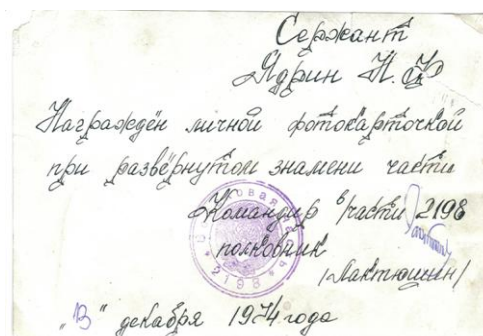 Сержант
Ядрин Н. Ф
Награждён личной фотокарточкой
при развёрнутом знамени части
Командир в/части 2198
полковник
/Лактюшин/
"13" декабря 1974 года
2198